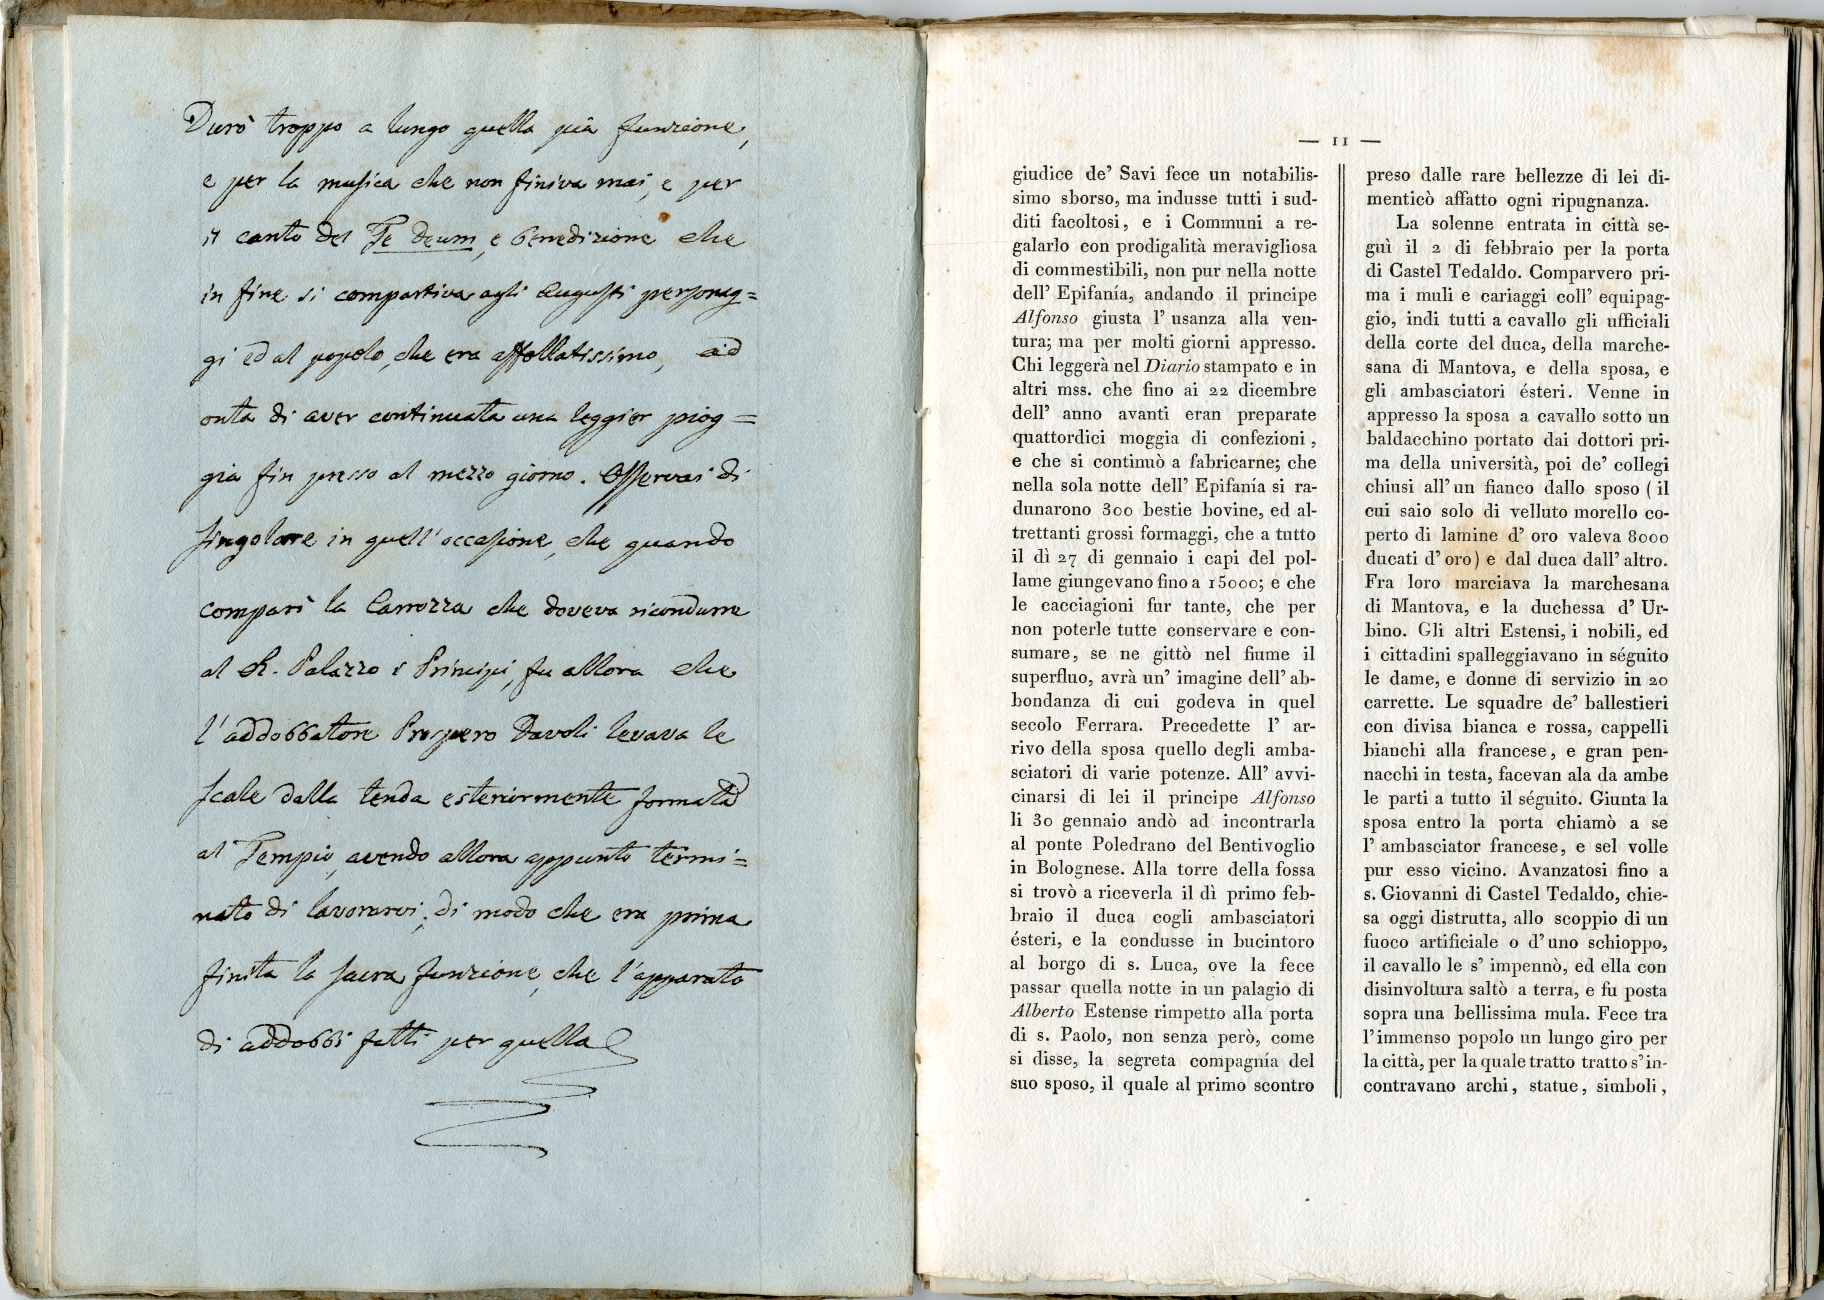 Durò troppo a lungo quella pia funzione,
e per la musica che non finiva mai, e per
il canto del Te Deum, e benedizione che
in fine si compartiva agli Augusti personag=
gi ed al popolo, che era affollatissimo, ad
onta di aver continuata una leggier piog=
gia fin presso al mezzo giorno. Osservai di
singolare in quell'occasione, che quando
comparì la Carrozza che doveva ricondurre
al R. Palazzo i Principi, fu allora che
l'addobbatore Prospero Davoli levava le
scale dalla tenda esteriormente formata
al Tempio, avendo allora appunto termi=
nato di lavorarvi; di modo che era prima
finita la sacra funzione, che l'apparato
di addobbi fatti per quella
— 11 —
giudice de' Savi fece un notabilis-
simo sborso, ma indusse tutti i sud-
diti facoltosi, e i Communi a re-
galarlo con prodigalità meravigliosa
di commestibili, non pur nella notte
dell' Epifanía, andando il principe
Alfonso giusta l' usanza alla ven-
tura; ma per molti giorni appresso.
Chi leggerà nel Diario stampato e in
altri mss. che fino ai 22 dicembre
dell' anno avanti eran preparate
quattordici moggia di confezioni,
e che si continuò a fabricarne; che
nella sola notte dell' Epifanía si ra-
dunarono 300 bestie bovine, ed al-
trettanti grossi formaggi, che a tutto
il dì 27 di gennaio i capi del pol-
lame giungevano fino a 15000; e che
le cacciagioni fur tante, che per
non poterle tutte conservare e con-
sumare, se ne gittò nel fiume il
superfluo, avrà un' imagine dell' ab-
bondanza di cui godeva in quel
secolo Ferrara. Precedette l' ar-
rivo della sposa quello degli amba-
sciatori di varie potenze. All' avvi-
cinarsi di lei il principe Alfonso
li 30 gennaio andò ad incontrarla
al ponte Poledrano del Bentivoglio
in Bolognese. Alla torre della fossa
si trovò a riceverla il dì primo feb-
braio il duca cogli ambasciatori
ésteri, e la condusse in bucintoro
al borgo di s. Luca, ove la fece
passar quella notte in un palagio di
Alberto Estense rimpetto alla porta
di s. Paolo, non senza però, come
si disse, la segreta compagnía del
suo sposo, il quale al primo scontro
preso dalle rare bellezze di lei di-
menticò affatto ogni ripugnanza.
La solenne entrata in città se-
guì il 2 di febbraio per la porta
di Castel Tedaldo. Comparvero pri-
ma i muli e cariaggi coll' equipag-
gio, indi tutti a cavallo gli ufficiali
della corte del duca, della marche-
sana di Mantova, e della sposa, e
gli ambasciatori ésteri. Venne in
appresso la sposa a cavallo sotto un
baldacchino portato dai dottori pri-
ma della università, poi de' collegi
chiusi all' un fianco dallo sposo (il
cui saio solo di velluto morello co-
perto di lamine d' oro valeva 8000
ducati d' oro) e dal duca dall' altro.
Fra loro marciava la marchesana
di Mantova, e la duchessa d' Ur-
bino. Gli altri Estensi, i nobili, ed
i cittadini spalleggiavano in séguito
le dame, e donne di servizio in 20
carrette. Le squadre de' ballestieri
con divisa bianca e rossa, cappelli
bianchi alla francese, e gran pen-
nacchi in testa, facevan ala da ambe
le parti a tutto il séguito. Giunta la
sposa entro la porta chiamò a se
l' ambasciator francese, e sel volle
pur esso vicino. Avanzatosi fino a
s. Giovanni di Castel Tedaldo, chie-
sa oggi distrutta, allo scoppio di un
fuoco artificiale o d' uno schioppo,
il cavallo le s' impennò, ed ella con
disinvoltura saltò a terra, e fu posta
sopra una bellissima mula. Fece tra
l' immenso popolo un lungo giro per
la città, per la quale tratto tratto s' in-
contravano archi, statue, simboli,